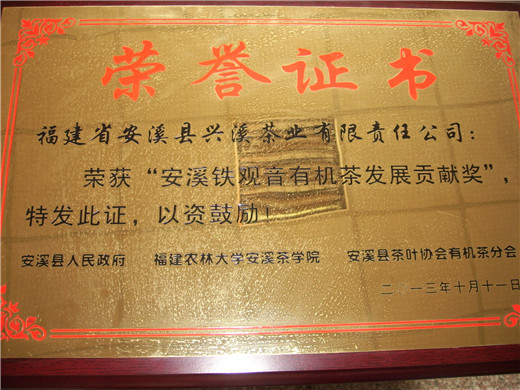 荣誉证书
福建省安溪县兴溪茶业有限责任公司：
荣获“安溪铁观音有机茶发展贡献奖”，
特发此证，以资鼓励！
安溪县人民政府 福建农林大学安溪茶学院 安溪县茶叶协会有机茶分会
二 一三年十月十一日